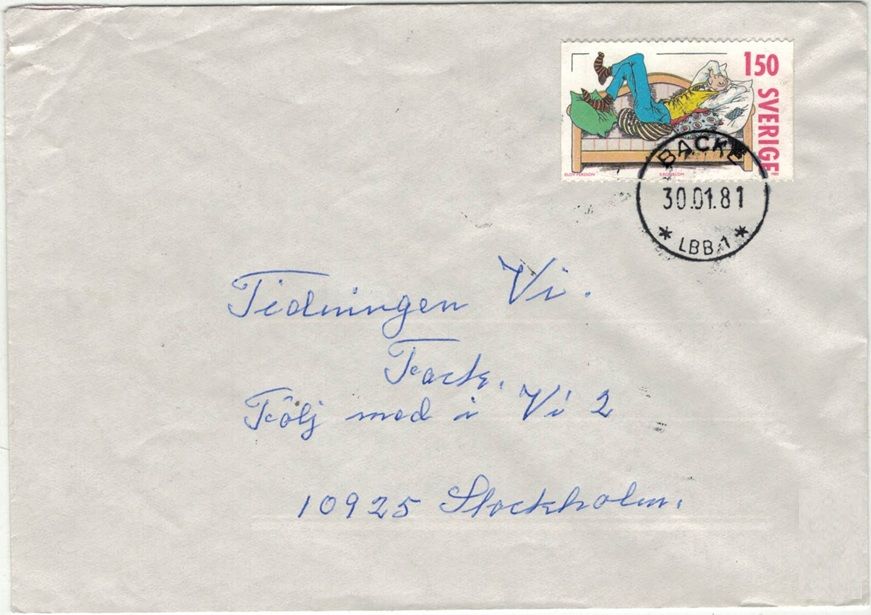 150
SVERIGE
BACKE
30.01.81
* LBB 1 *
Tidningen Vi.
Fack.
Följ med i Vi 2
10925 Stockholm.